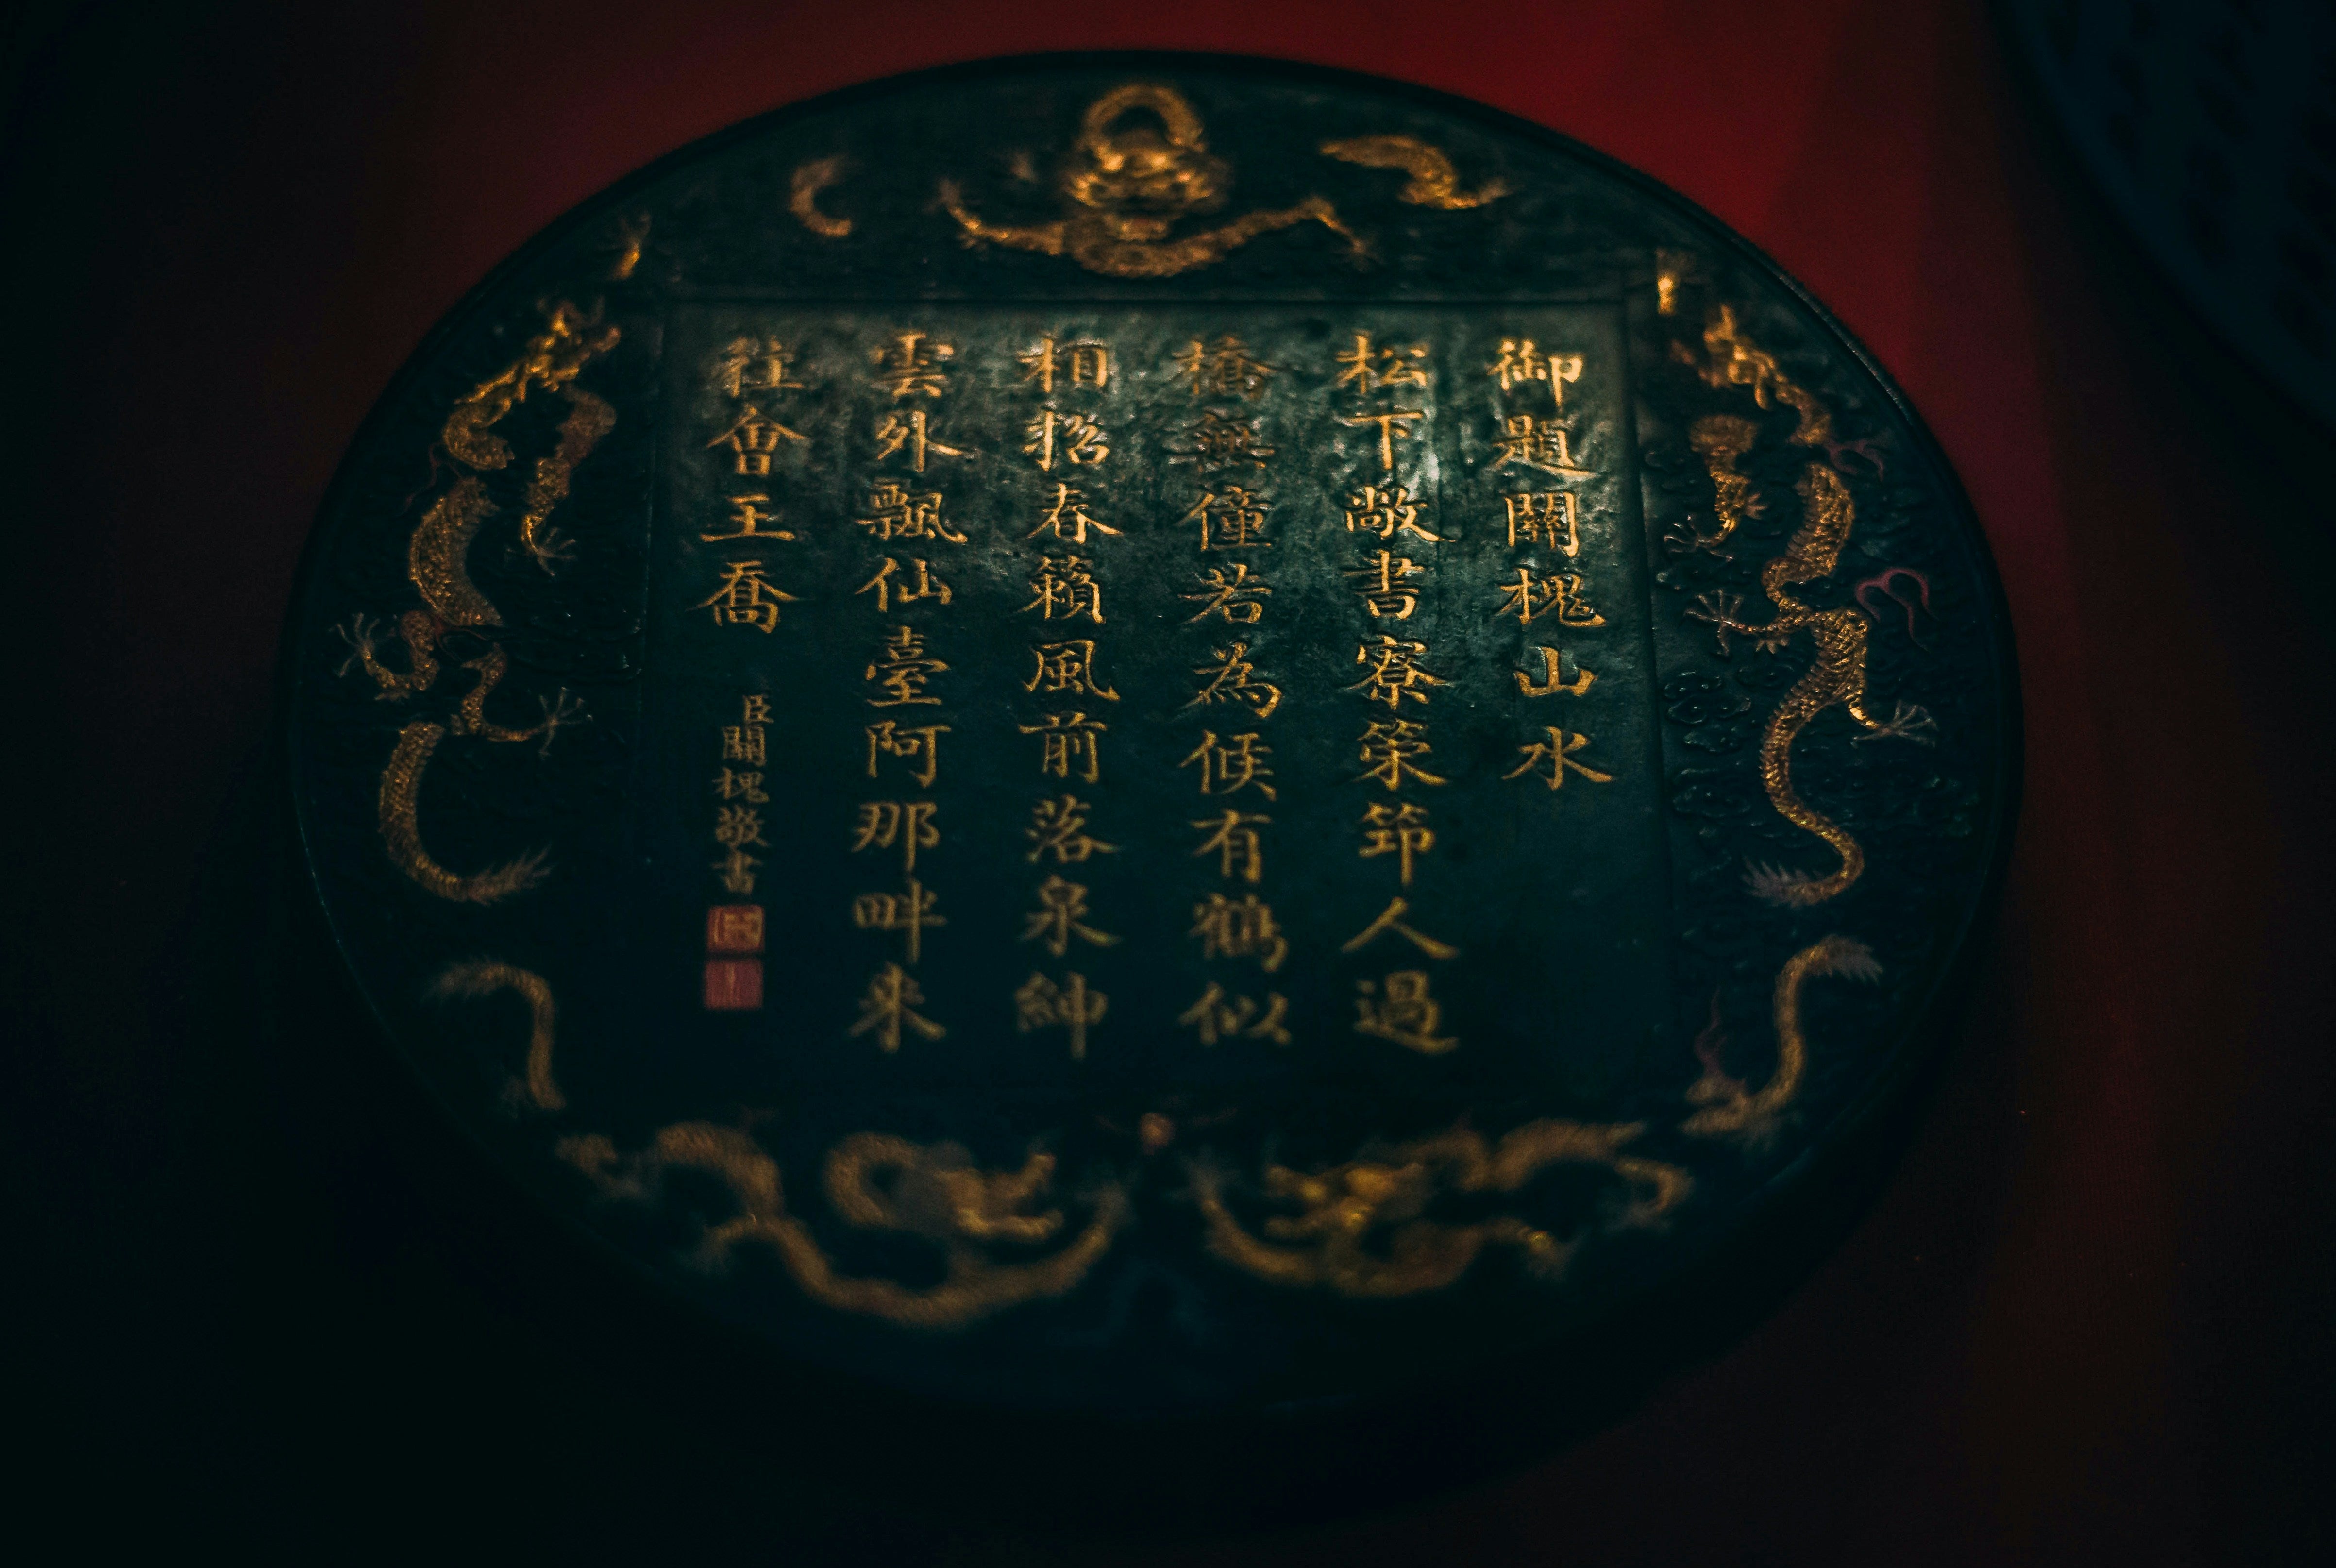 御題關槐山水
松下敞書寮策筇人過
橋無僮若為候有鶴似
相招春籟風前落泉紳
雲外飄仙臺阿那畔来
社會王喬
臣關槐敬書